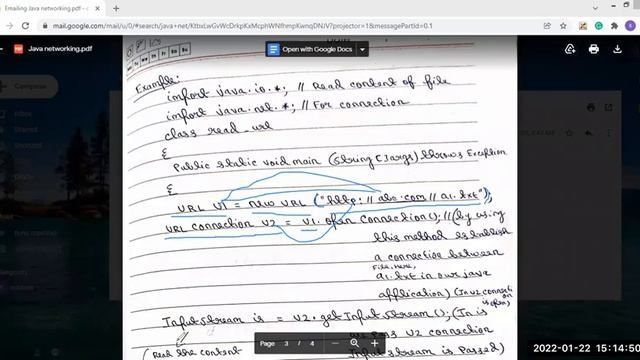 Emailing Java networking.pdf - c
mail.google.com/mail/u/0/#search/java+net/KtbxLwGvWcDrkpKxMcphWNfhmpKwnqDNJV?projector=1&messagePartId=0.1
PDF Emailing Java networking.pdf
Open with Google Docs
Compose
Inbox
Starred
Snoozed
Sent
Drafts
Example:
import java.io.*; // Read content of file
import java.net.*; // For connection
class read_url
{
Public static void main (String [] args) throws Exception
{
URL V1 = new URL ("http://abc.com//a1.txt");
URL connection V2 = V1.open connection(); // (by using
this method establish
a connection between
File, here,
a1.txt in our java
application) (In V2 connecti
on
is open)
InputStream is = V2.getInputStream(); (In is
we pass V2 connection
(Read the content
InputStream is Passed)
Page 3 / 4
2022-01-22 15:14:50